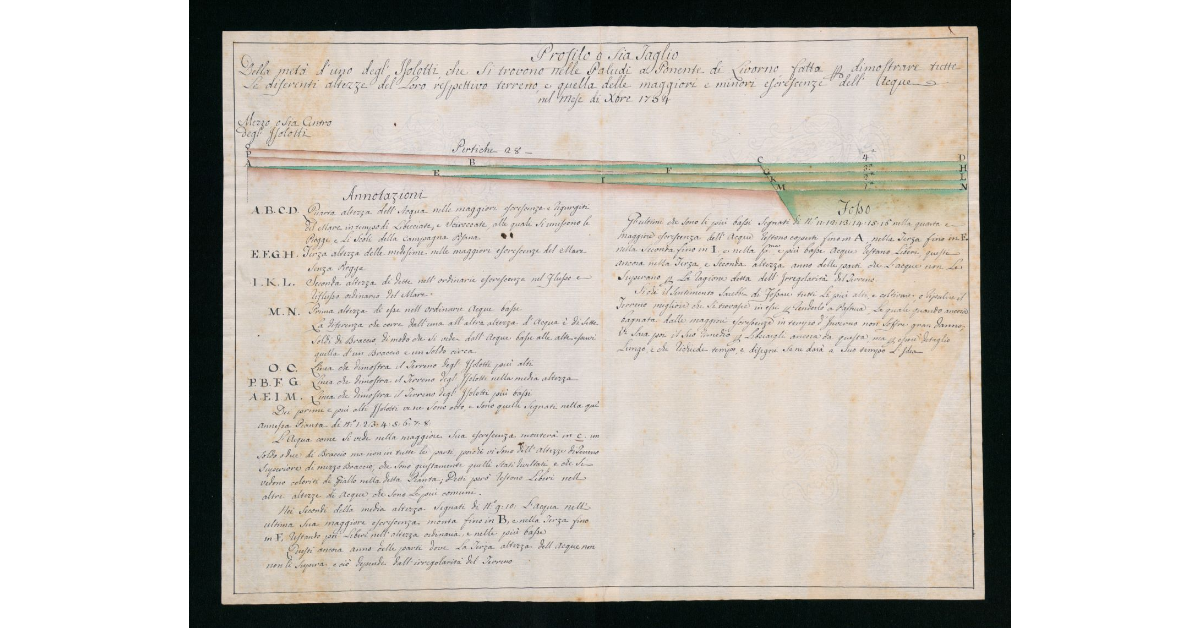 Profilo o Sia Taglio
Della metà d'uno degl' Isolotti che Si trovono nelle Paludi a Ponente di Livorno fatta p dimostrare tutte
Le diferenti altezze del Loro respettivo terreno, e quella delle maggiori e minori escrescenze dell' Acque
nel Mese di Xbre 1754
Mezzo o Sia Centro
degl' Isolotti
Pertiche 28
O P A B E I F C G K M 4 3 2 1 D H L N
Fosso
Annotazioni
A.B.C.D. Quarta altezza dell' Acqua nelle maggiori escrescenze e
del Mare in tempo di Libecciate, e alle quale Si unissono le
Piogge e Li Scoli della Campagna
E.F.G.H. Terza altezza delle medesime nelle maggiori escrescenze del Mare
Senza Piogge
I.K.L. Seconda altezza di dette nell' ordinarie escrescenze nel Flusso e
reflusso ordinario del Mare.
M.N. Prima altezza di esse nell' ordinarie Acque basse
La diferenza che corre dall' una all' altra altezza d'Acqua è di Sette
Soldi di Braccio di modo che Si vede dall' Acque basse alle alte esservi
quella d'un Braccio e un Soldo circa.
O.C. Linea che dimostra il Terreno degl' Isolotti più alti
P.B.F.G Linea che dimostra il Terreno degl' Isolotti nella media altezza
A.E.I.M. Linea che dimostra il Terreno degl' Isolotti più bassi
Dei primi e più alti Isolotti ve ne Sono otto e Sono quelli Segnati nella qui
annessa Pianta di N.i 1. 2. 3. 4. 5. 6. 7. 8.
L'Acqua come Si vede nella maggiore Sua escrescenza monterà in C. un
Soldo o due di Braccio ma non in tutte le parti perchè vi Sono dell' Altezze di Terreno
Superiore di mezzo Braccio, che Sono giustamente quelle State e che Si
vedono coloriti di Giallo nella detta Pianta; Detti però restono Liberi nell'
altre altezze di Acque che Sono Le più comuni.
Nei Secondi della media altezza Segnati di N.i 9. 10. L'acqua nell'
ultima Sua maggiore escrescenza monta fino in B, e nella Terza fino
in F. restando poi Liberi nell' altezza ordinaria e nelle più basse
Questi ancora anno delle parti dove La Terza altezza dell' Acque non
non li Supera e ciò depende dall' irregolarità del Terreno
Gl'ultimi che Sono li più bassi Segnati di N.i 11. 12. 13. 14. 15. 16 nella quarta e
maggiore escrescenza dell' Acque restono coperti fino in A nella Terza fino in E.
nella Seconda fino in I e nella p.ma e più basse Acque restano Liberi, questi
ancora nella Terza e Seconda altezza anno delle parti che L'acque non Le
Superano p La ragione detta dell' Irregolarità del Terreno
Si che il Sentimento Sarebbe di fossare tutti Le più alti, e coltivare, o
Terreno migliore che Si trovasse in essi p renderlo a Pastura Le quale quando ancora
bagnata dalle maggiori escrescenze in tempo d'Inverno non Soffre gran danno,
vi Saria poi il Suo rimedio p Liberargli ancora da questa ma p esser dettaglio
Lungo, e che richiede tempo, e disegni Se ne darà a Suo tempo L'Idea